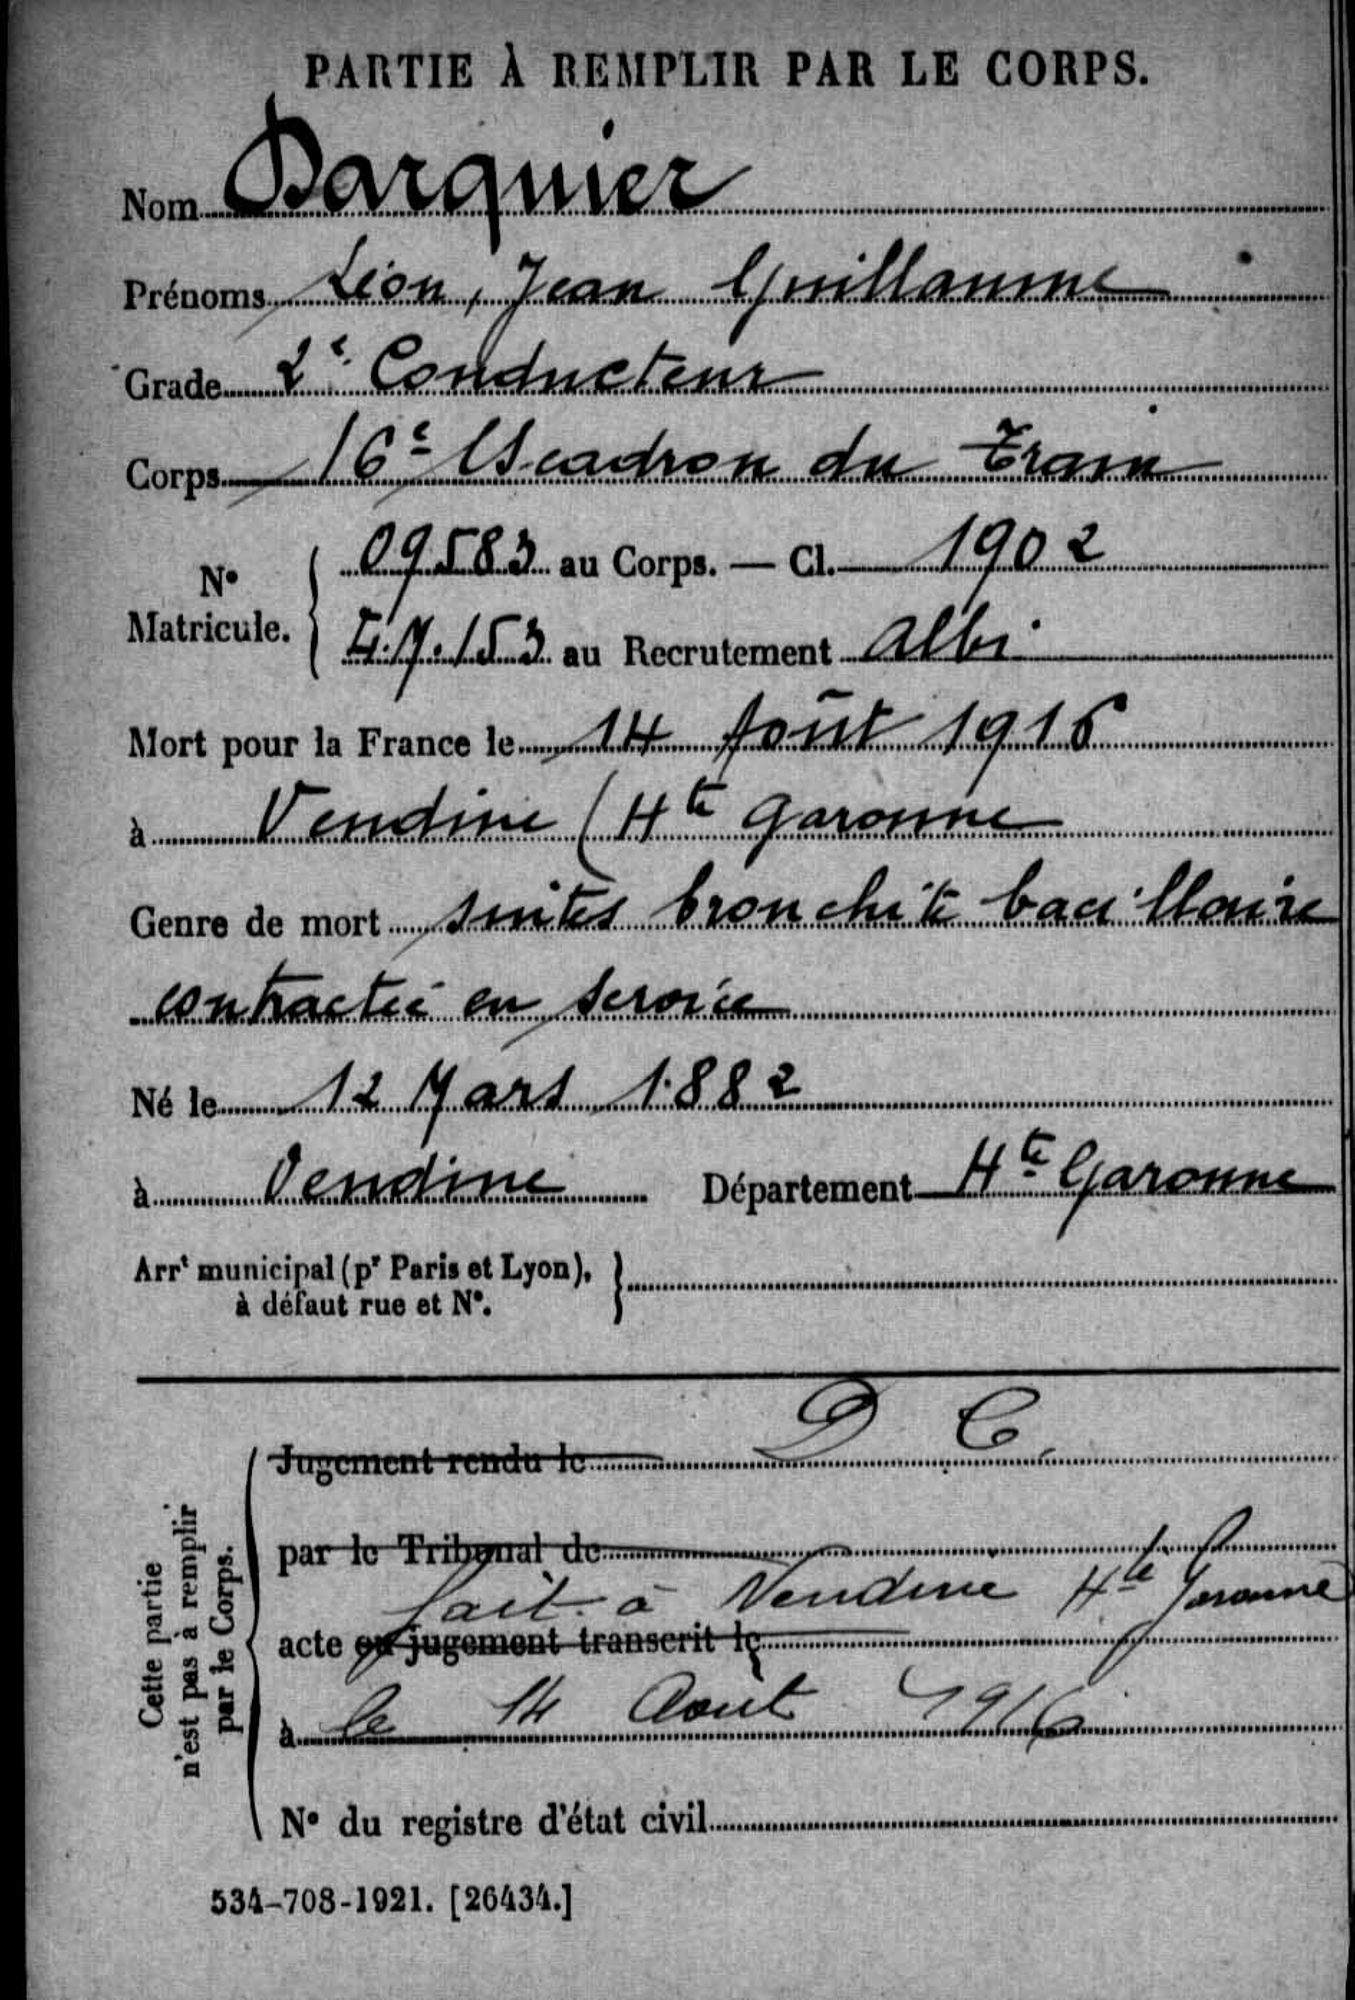 PARTIE À REMPLIR PAR LE CORPS.
Nom Darquier
Prénoms Léon, Jean Guillaume
Grade 2e Conducteur
Corps 16e Escadron du Train
No Matricule. { 09583 au Corps. — Cl. 1902
153 au Recrutement Albi
Mort pour la France le 14 Août 1916
à Vendine (Hte Garonne
Genre de mort suites bronchite bacillaire
contractée en service
Né le 12 Mars 1882
à Vendine Département Hte Garonne
Arrt municipal (pr Paris et Lyon), }
à défaut rue et No.
D C.
Jugement rendu le
par le Tribunal de
fait à Vendine Hte Garonne
acte ou jugement transcrit le
à le 14 Aout 1916
No du registre d'état civil
Cette partie
n'est pas à remplir
par le Corps.
534-708-1921. [26434.]